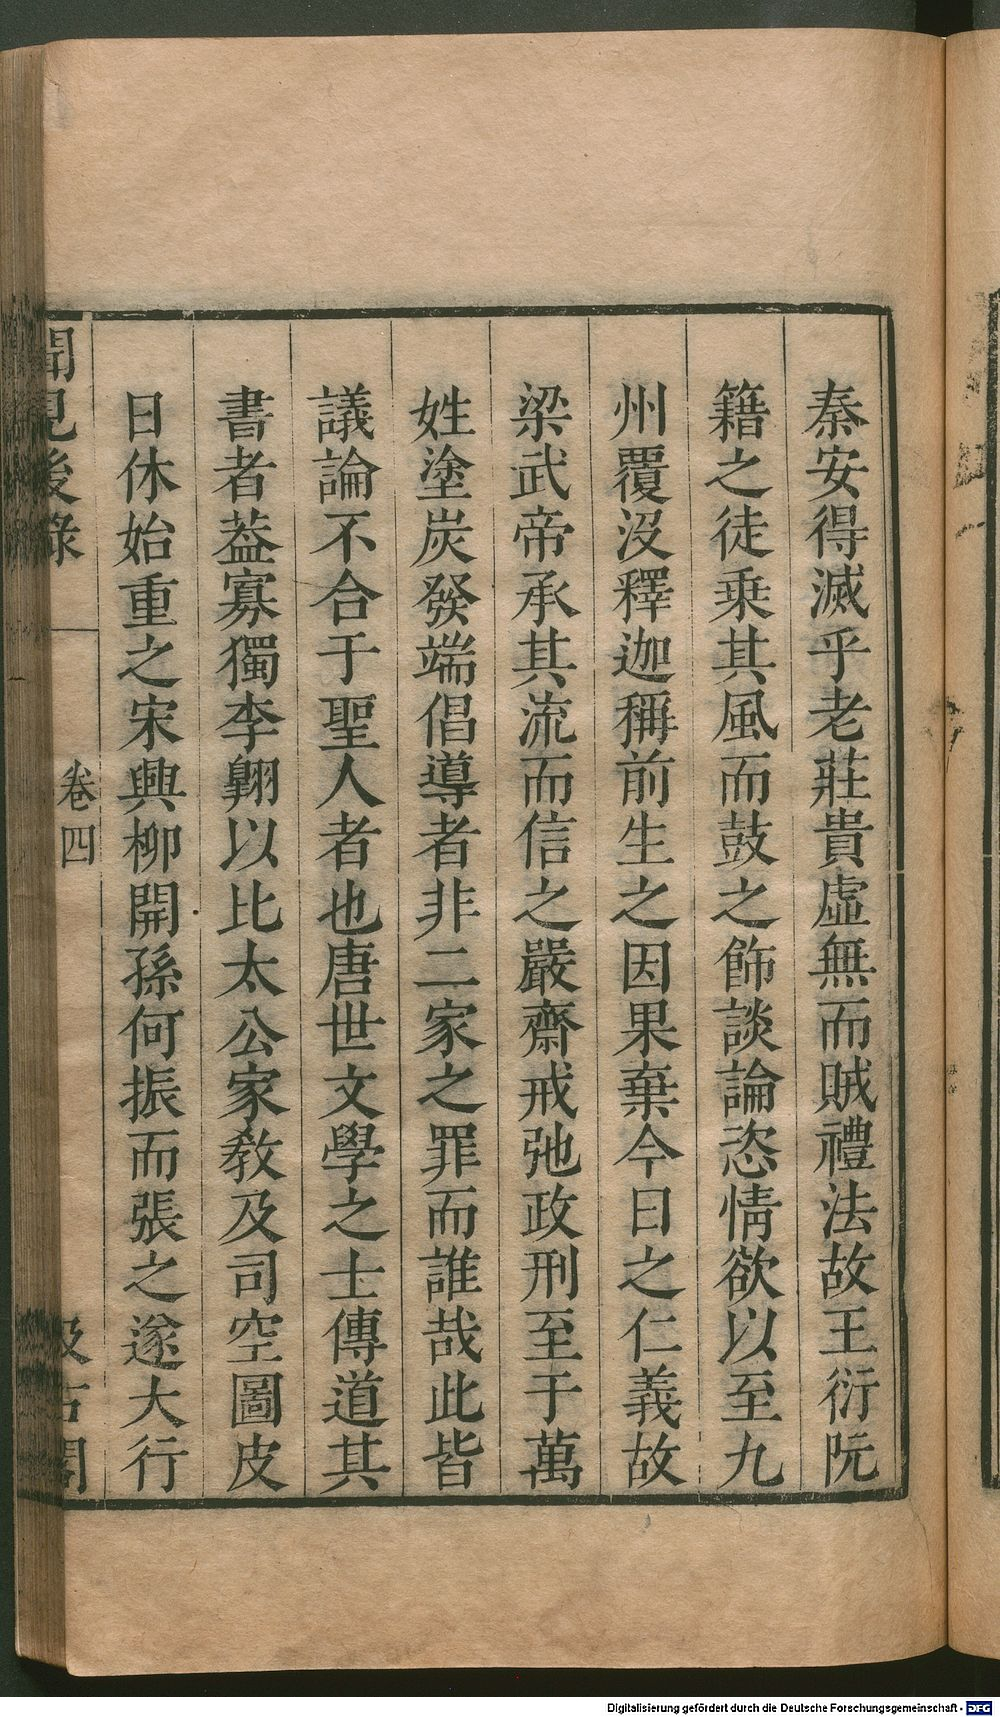 秦安得滅乎老莊貴虛無而賊禮法故王衍阮
籍之徒乗其風而鼓之飾談論恣情欲以至九
州覆沒釋迦稱前生之因果棄今日之仁義故
梁武帝承其流而信之嚴齋戒弛政刑至于萬
姓塗炭發端倡導者非二家之罪而誰哉此皆
議論不合于聖人者也唐世文學之士傳道其
書者葢寡獨李翺以比太公家敎及司空圖皮
日休始重之宋興柳開孫何振而張之遂大行
聞見後錄
卷四
汲古閣
Digitalisierung gefördert durch die Deutsche Forschungsgemeinschaft - DFG